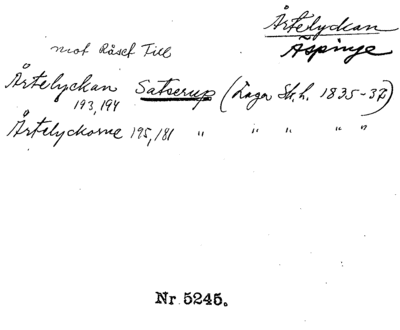 Årtelyckan
Äspinge
mot Råset Till
Årtelyckan Satserup (Laga Sk. h. 1835-37)
193, 194
Årtelyckorne 195, 181 " " " " "
Nr 5245.